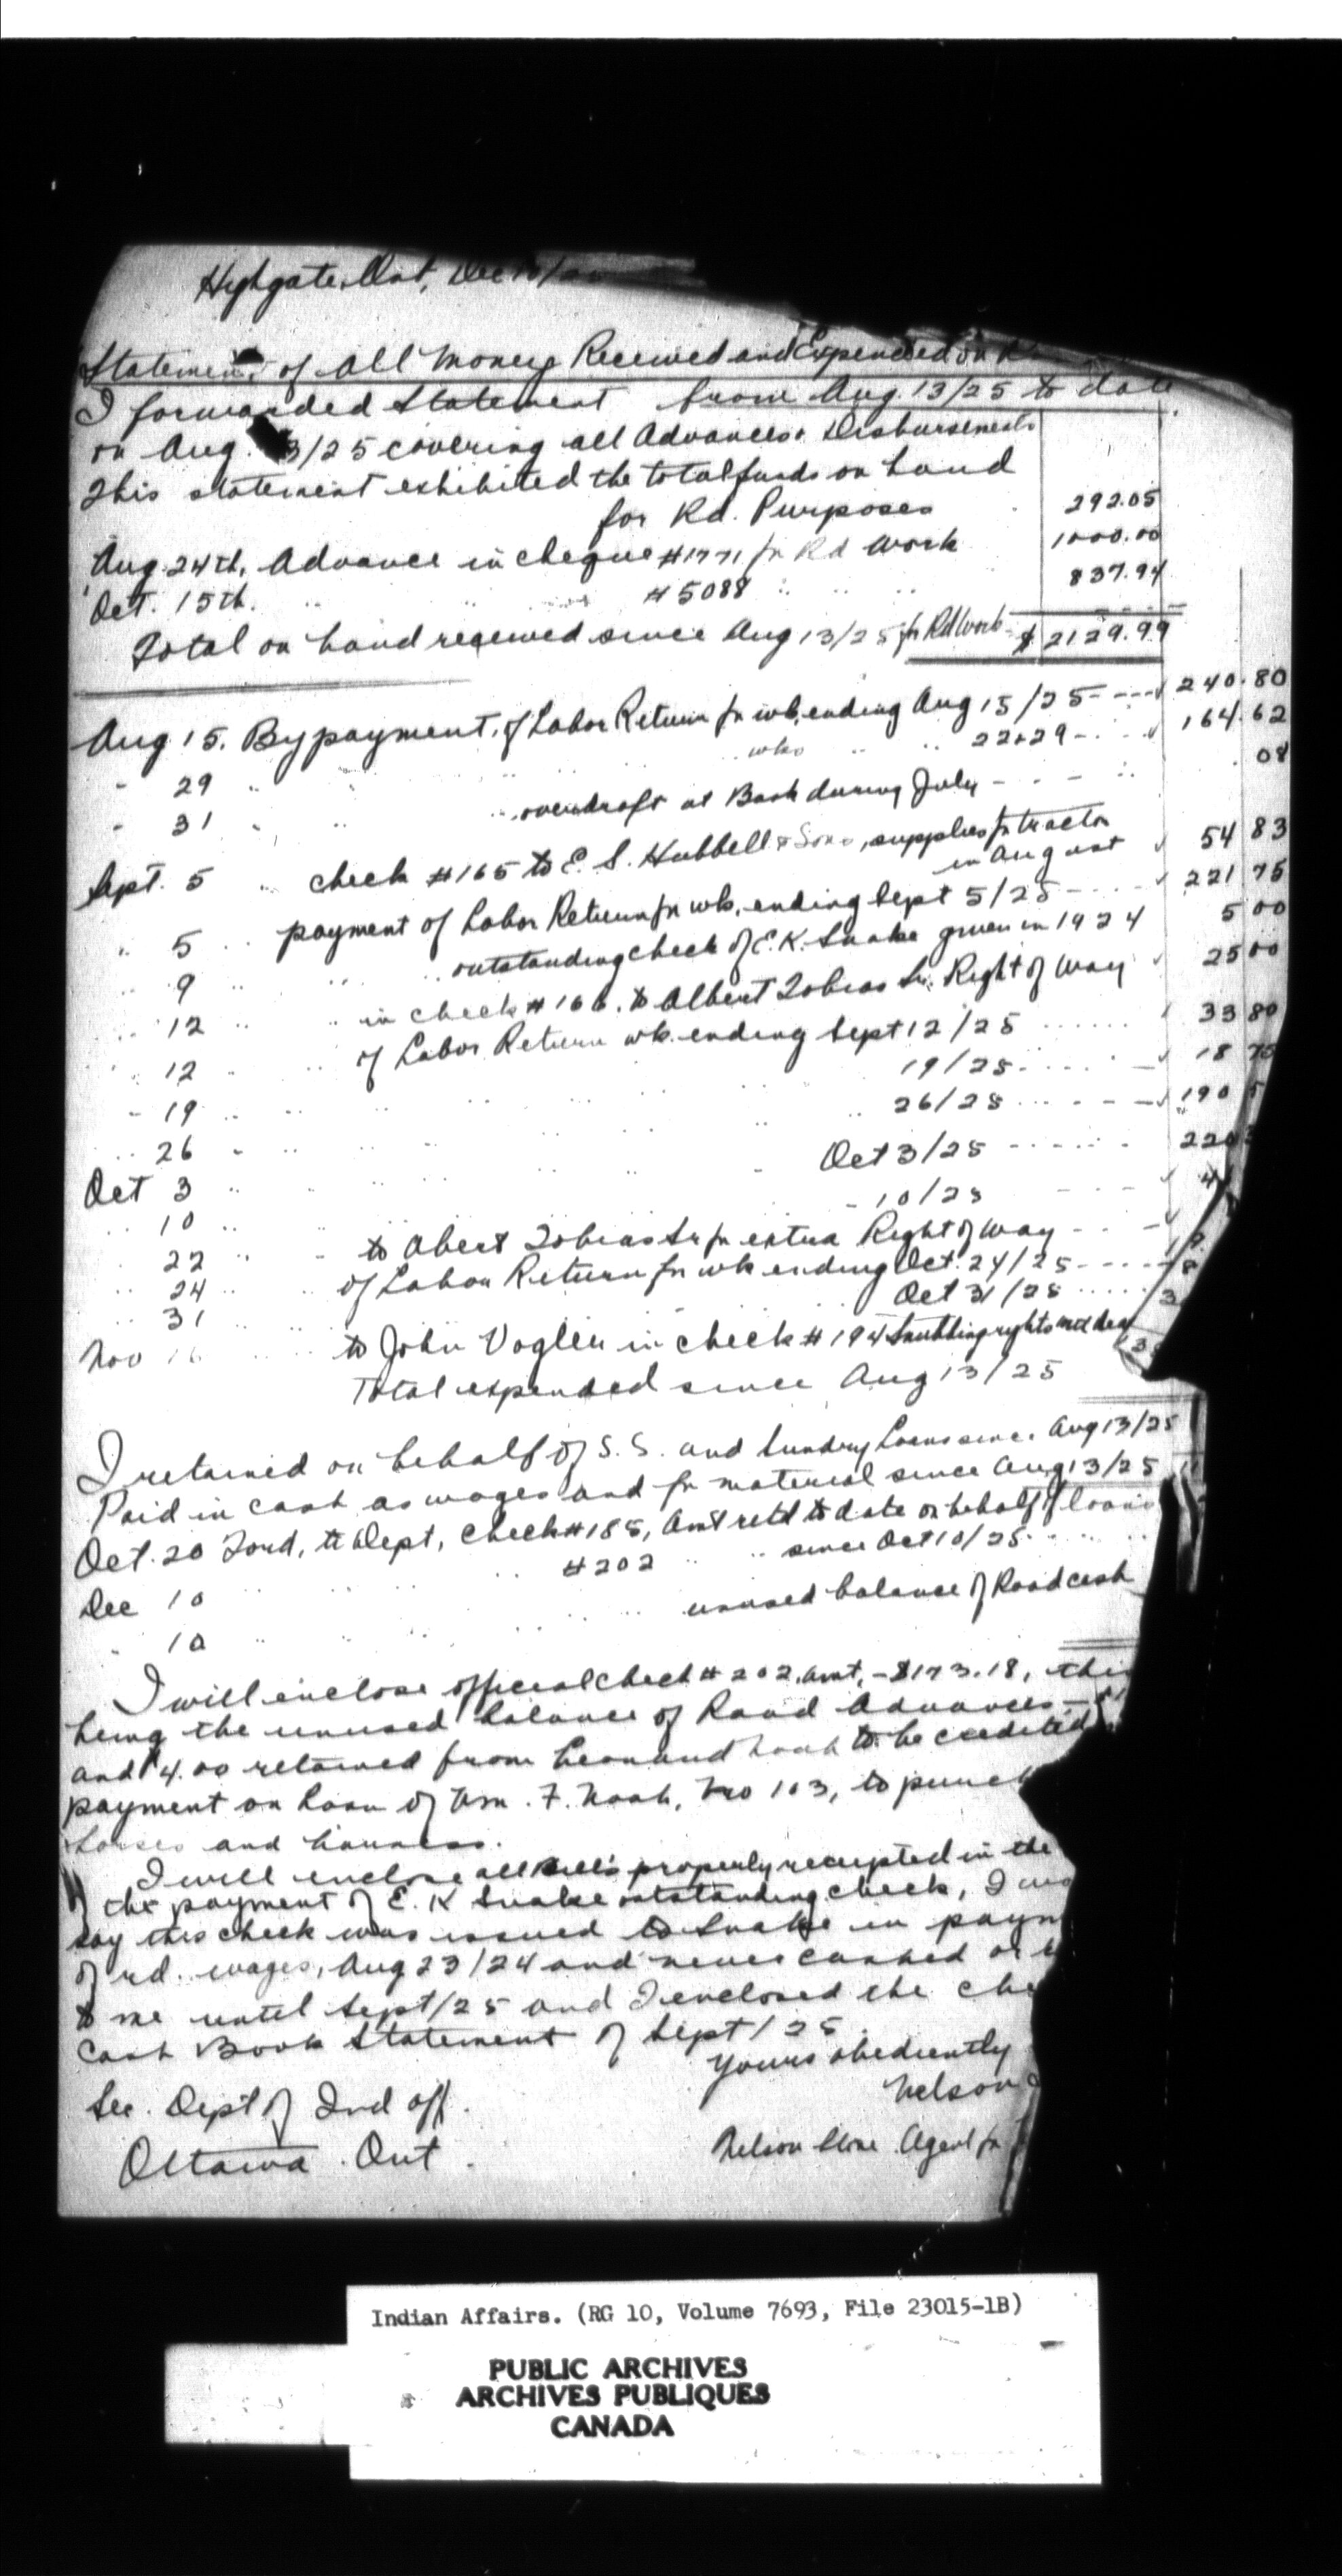 Highgate, Ont, Dec
Statement of all money Received and Expended on
I forwarded Statement from Aug. 13/25 to date
on Aug. 3/25 covering all Advances & Disbursements
This statement exhibited the total funds on hand
for Rd. Purposes 292.05
Aug. 24th, Advance in cheque #1771 for Rd Work 1000.00
Oct. 15th. " " #5088 " " " 837.94
Total on hand received since Aug 13/25 for Rd Work $ 2129.99
Aug 15. By payment, of Labor Return for wk, ending Aug 15/25 240.80
" 29 " " wks " " 22 & 29 164.62
" 31 " " overdraft at Bank during July 08
Sept. 5 " check #165 to E. S. Hubbell & Sons, supplies for tractor
in August 54 83
" 5 " payment of Labor Return for wk, ending Sept 5/25 221 75
" 9 " " outstanding check of E. K. Snake given in 1924 5 00
" 12 " " in check #166. to Albert Tobias Sr. Right of Way 25 00
" 12 " " of Labor Return wk. ending Sept 12/25 33 80
" 19 " " " " 19/25 18 75
" 26 " " " " 26/25 190
Oct 3 " " " " Oct 3/25 220
" 10 " " " " 10/25
" 22 " " to Abert Tobias Sr for extra Right of Way
" 24 " " of Labor Return for wk ending Oct. 24/25
" 31 " " Oct 31/25
Nov 16 " " to John Vogler in check #194
Total expended since Aug 13/25
I retained on behalf of S. S. and Sundry Loans since Aug 13/25
Paid in cash as wages and for material since Aug 13/25
Oct. 20 Ford, to Dept, check #185, Amt retd to date on behalf of loans
Dec 10 " " #202 " " since Oct 10/25
" 10 " " " " unused balance of Road cash
I will enclose official check #202, amt, - $173.18, this
being the unused balance of Road Advances
and $4.00 retained from Leonard Noah to be credited
payment on loan of Wm. F. Noah, No 103, to
horses and harness.
I will enclose all bills properly receipted in the
of the payment of E. K Snake outstanding check, I
say this check was issued to Snake in
of rd. wages, Aug 23/24 and never cashed or
to me until Sept/25 and I enclosed the
Cash Book Statement of Sept/25.
Yours obediently
Nelson
Sec. Dept of Ind aff.
Ottawa. Ont.
Nelson Stone Agent for
Indian Affairs. (RG 10, Volume 7693, File 23015-1B)
PUBLIC ARCHIVES
ARCHIVES PUBLIQUES
CANADA